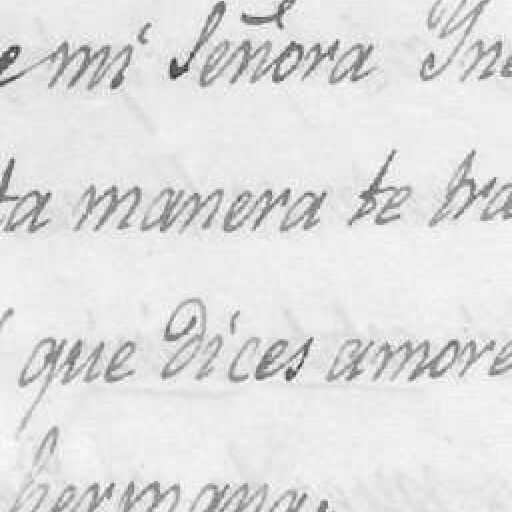 e mi Señora Yne
ta manera te tra
que dices amore
hermana.